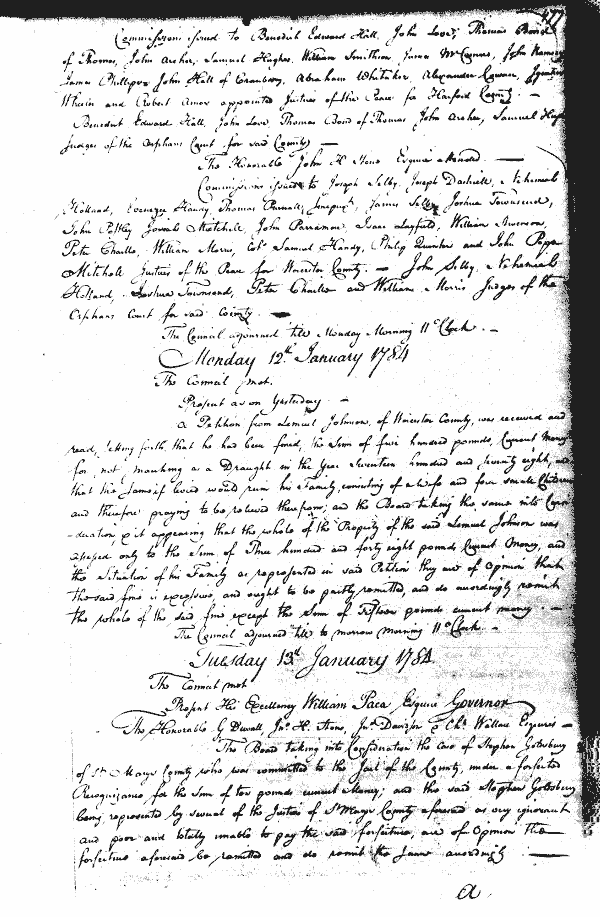 477
Commissions issued to Benedict Edward Hall, John Love, Thomas Bond
of Thomas, John Archer, Samuel Hughes, William Smithson, James McComas, John Rumsey
James Phillips John Hall of Cranberry, Abraham Whitaker, Alexander Cowan, Ignatius
Wheeler and Robert Amos appointed Justices of the Peace for Harford County. —
Benedict Edward Hall, John Love, Thomas Bond of Thomas, John Archer, Samuel Hughes
Judges of the Orphans Court for said County —
The Honorable John H Stone Esquire attended. —
Commissions issued to Joseph Selby, Joseph Dashiell, Nehemiah
Holland, Ebenezer Handy, Thomas Purnell, James Selby, Joshua Townsend,
John Pitkey Mitchell, John Parramore, Isaac Layfield, William
Peter Chaille, William Morris, Col. Samuel Handy, Philip Quinton and John Pope
Mitchell Justices of the Peace for Worcester County. — John Selby, Nehemiah
Holland, Joshua Townsend, Peter Chaille and William Morris Judges of the
Orphans Court for said County. —
The Council adjourned till Monday Morning 11 oClock. —
Monday 12th January 1784
The Council met.
Present as on Yesterday. —
A Petition from Lemuel Johnson, of Worcester County, was received and
read, setting forth, that he had been fined, the Sum of five hundred pounds, Current Money
for, not, marching as a Draught in the Year Seventeen hundred and seventy eight, and
that the same if levied would ruin his Family, consisting of a wife and four small Children
and therefore praying to be relieved therefrom, and the Board taking the same into Consi
-deration, & it appearing that the whole of the Property of the said Lemuel Johnson was
assessed only to the Sum of Three hundred and forty eight pounds Current Money, and
the Situation of his Family as represented in said Petition they are of Opinion that
the said fine is excessive, and ought to be partly remitted, and do accordingly remit
the whole of the said fine except the Sum of Fifteen pounds current money. —
The Council adjourned till to morrow morning 11 oClock. —
Tuesday 13th January 1784
The Council met
Present His Excellency William Paca Esquire Governor
The Honorable G Duvall, Jno. H. Stone, Jno. Davidson & Chs. Wallace Esquires —
The Board taking into Consideration the Case of Stephen Goldsbury
of St. Marys County who was committed to the Jail of the County, under a forfeited
Recognizance, for the Sum of ten pounds current Money; and the said Stephen Goldsbury
being represented by several of the Justices of St. Marys County aforesaid as very ignorant
and poor and totally unable to pay the said forfeiture, are of Opinion the
forfeiture aforesaid be remitted and do remit the same accordingly —
a